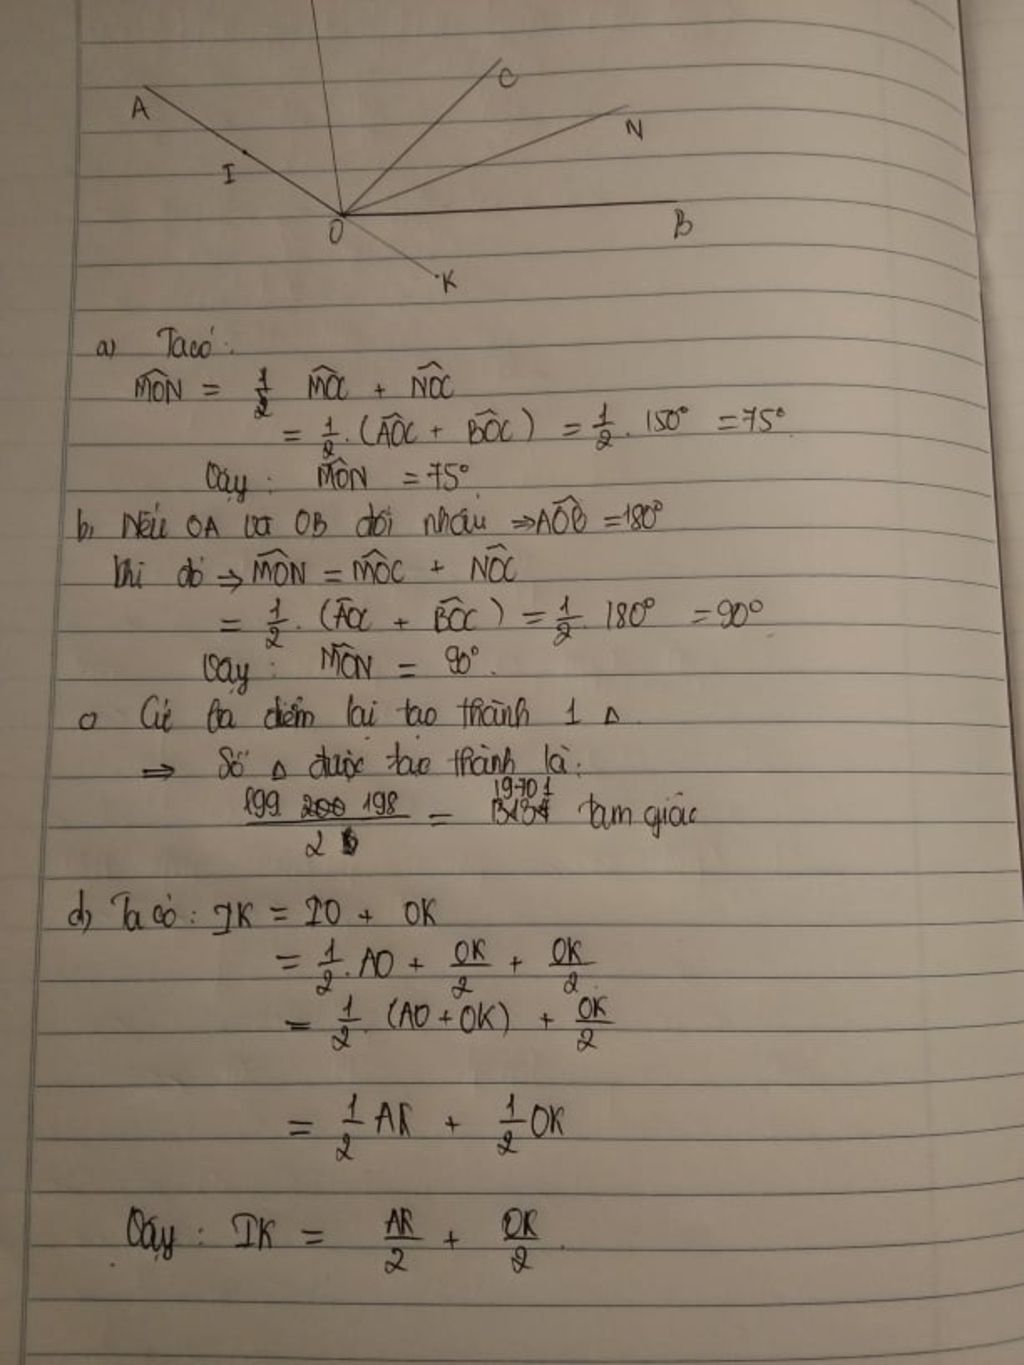 A
C
N
I
O
B
K
a) Ta có:
MON = 1/2 MOC + NOC
= 1/2 . (AOC + BOC) = 1/2 . 150° = 75°
Vậy : MON = 75°
b, Nếu OA và OB đối nhau ⇒ AOB = 180°
khi đó ⇒ MON = MOC + NOC
= 1/2 . (AOC + BOC) = 1/2 . 180° = 90°
Vậy : MON = 90°.
c) Cứ ba điểm lại tạo thành 1 Δ
⇒ Số Δ được tạo thành là:
199 200 198 / 2 = 19701 tam giác
d) Ta có : IK = IO + OK
= 1/2 . AO + OK/2 + OK/2
= 1/2 . (AO + OK) + OK/2
= 1/2 AK + 1/2 OK
Vậy : IK = AK/2 + OK/2 .